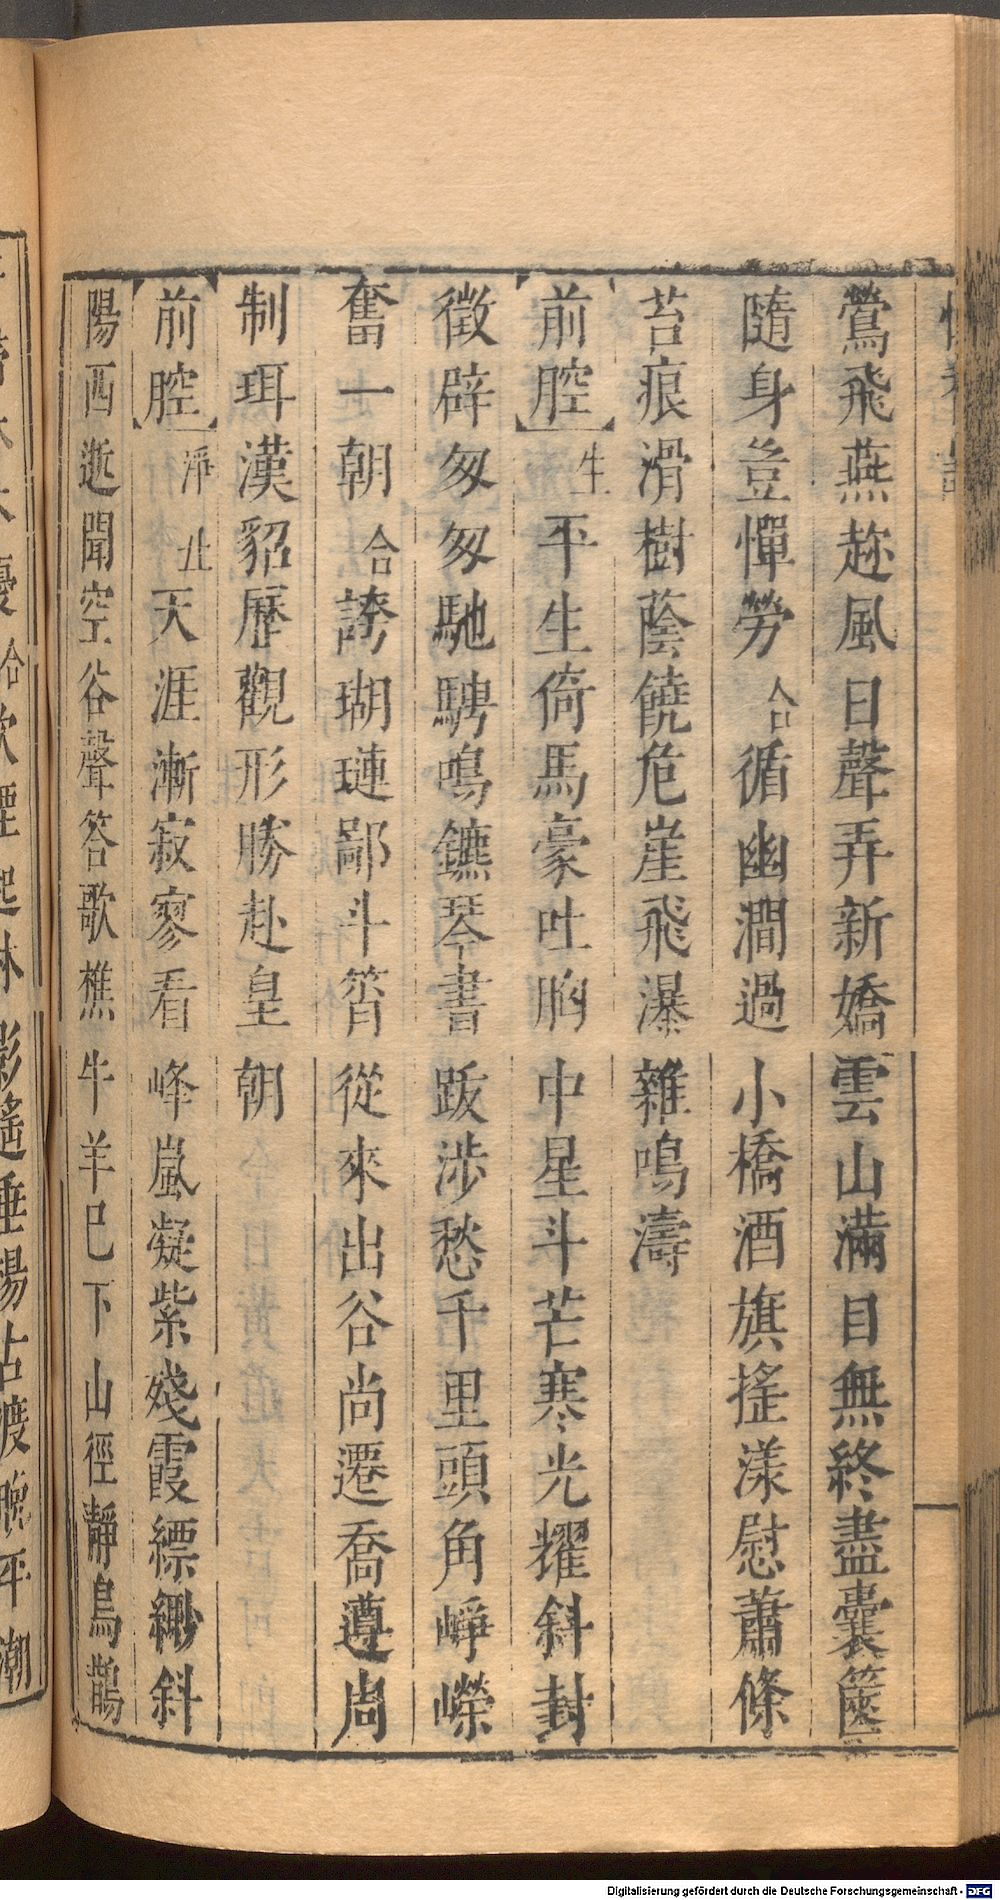 鶯飛燕趂風日聲弄新嬌雲山滿目無終盡囊篋
隨身豈憚勞合循幽澗過小橋酒旗搖漾慰蕭條
苔痕滑樹蔭饒危崖飛瀑雜鳴濤
前腔生平生倚馬豪吐胸中星斗芒寒光耀斜封
徵辟匆匆馳騁鳴鑣琴書跋涉愁千里頭角崢嶸
奮一朝合誇瑚璉鄙斗筲從來出谷尚遷喬遵周
制珥漢貂歷觀形勝赴皇朝
前腔淨丑天涯漸寂寥看峰嵐凝紫殘霞縹緲斜
陽西逝聞空谷聲答歌樵牛羊已下山徑靜鳥鵲
影遙垂陽古渡晚平潮
Digitalisierung gefördert durch die Deutsche Forschungsgemeinschaft - DFG